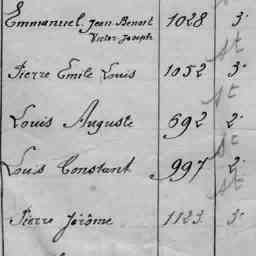 Emmanuel Jean Benoit 1028 3.
Victor Joseph
st
Pierre Emile Louis 1052 3.
st
Louis Auguste 692 2.
st
Louis Constant 997 2.
st
Pierre Jérôme 1123 3.